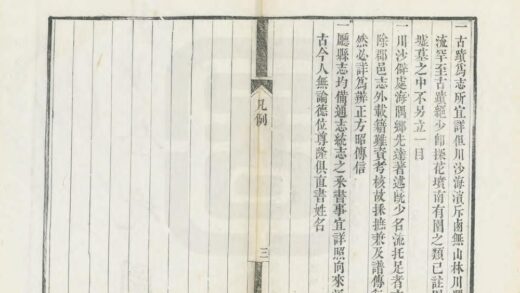 一古蹟爲志所宜詳但川沙海濱斥鹵無山林川
流罕至古蹟絕少卽探花墳南有園之類已註
墟墓之中不另立一目
一川沙僻處海隅鄉先達著述旣少名流托足者
除郡邑志外載籍難資考核故採摭兼及譜傳
然必詳爲辨正方昭傳信
一廳縣志均備通志統志之釆書事宜詳照向來
古今人無論德位尊隆俱直書姓名
凡例
三